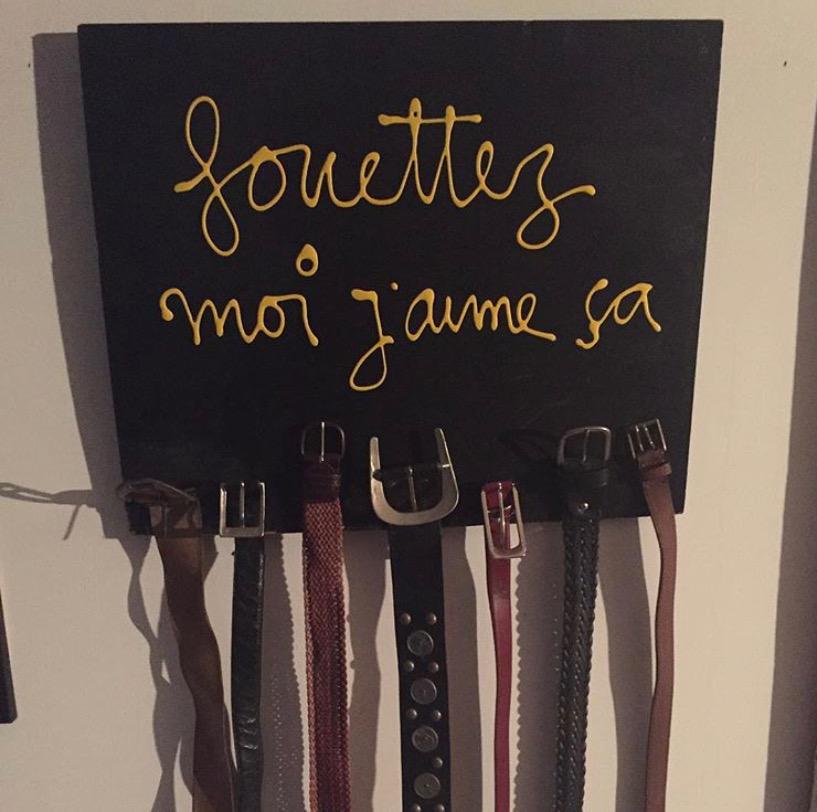 fouettez
moi j'aime ça